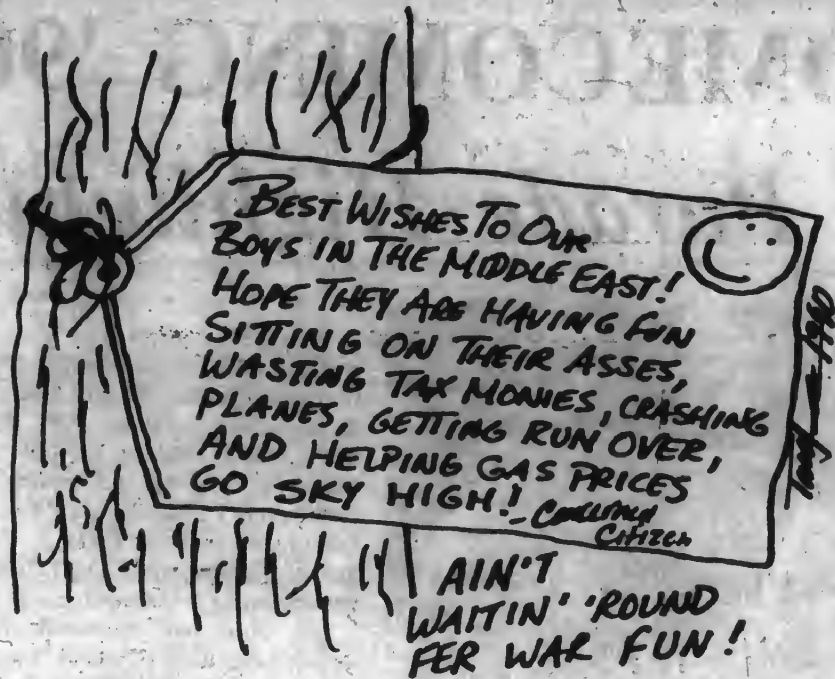 BEST WISHES TO OUR
BOYS IN THE MIDDLE EAST!
HOPE THEY ARE HAVING FUN
SITTING ON THEIR ASSES,
WASTING TAX MONIES, CRASHING
PLANES, GETTING RUN OVER,
AND HELPING GAS PRICES
GO SKY HIGH! -
CITIZEN
AIN'T
WAITIN' 'ROUND
FER WAR FUN!